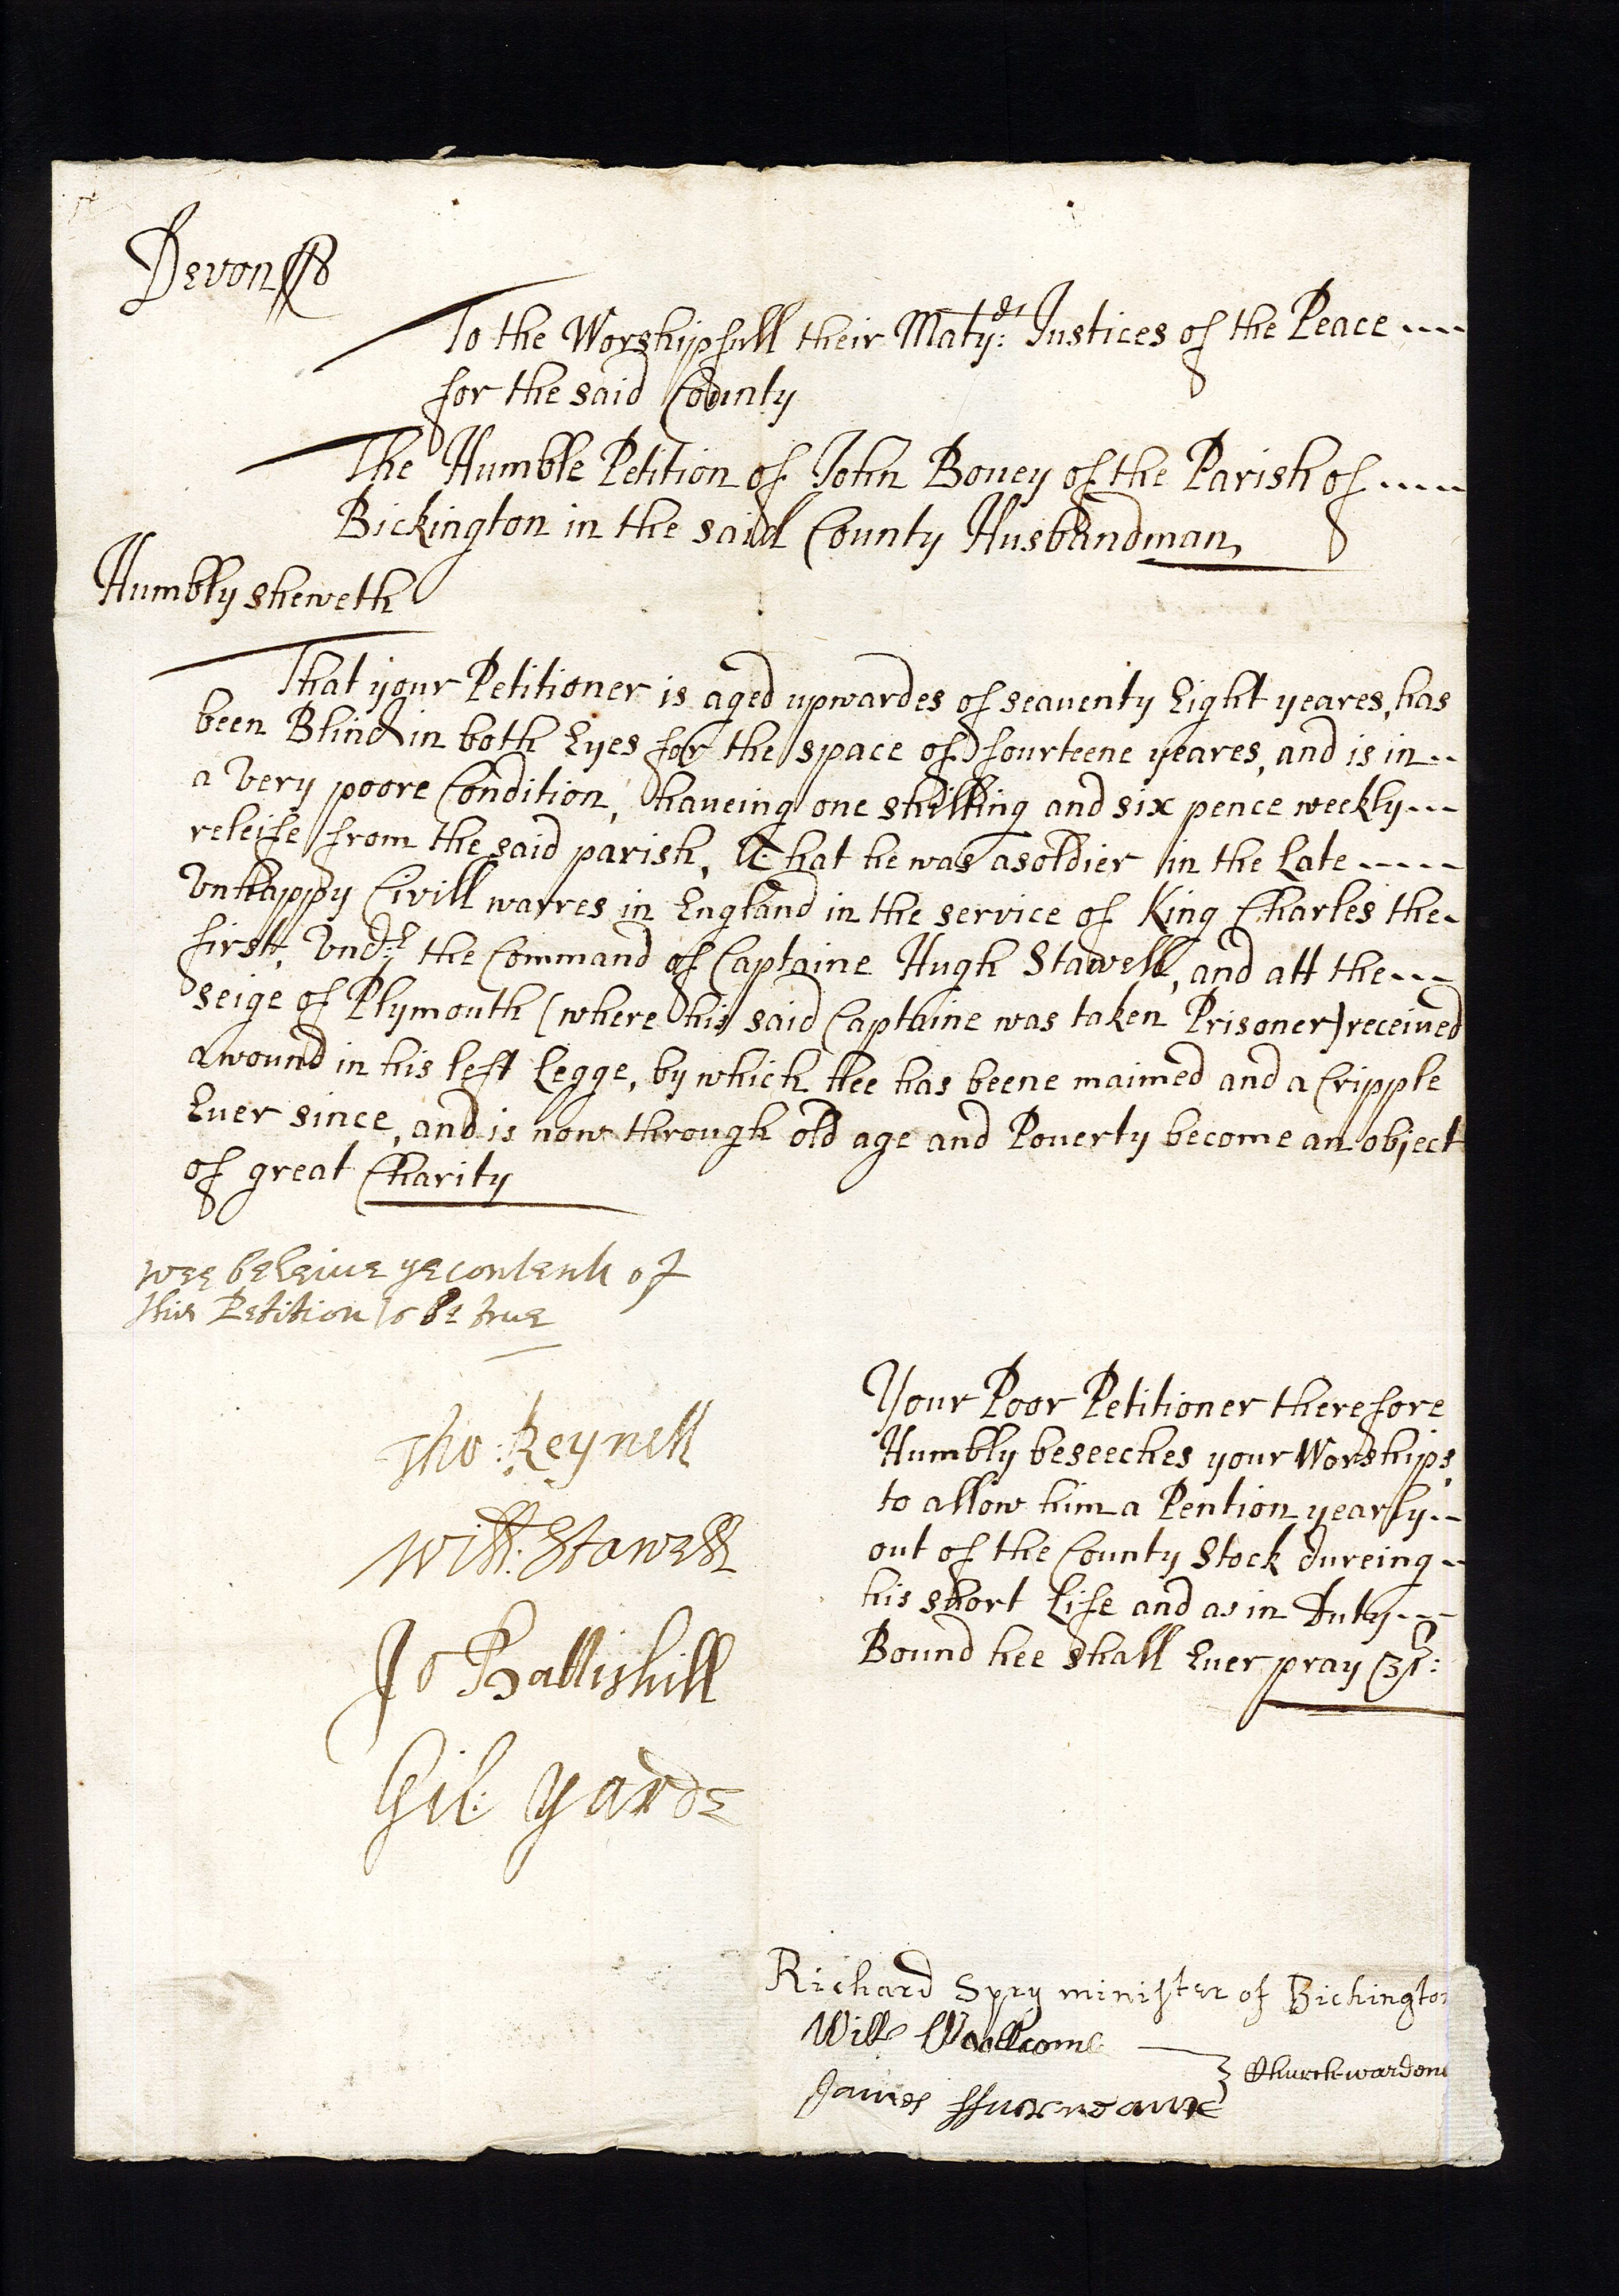 Devon ss
To the Worshipfull their Maty:es Justices of the Peace ----
for the said County
The Humble Petition of John Bovey of the Parish of ----
Bickington in the said County Husbandman,
Humbly sheweth
That your Petitioner is aged upwardes of seaventy Eight yeares, has
been Blind in both Eyes for the space of fourteene yeares, and is in --
a Very poore Condition, haveing one shilling and six pence weekly ---
releife from the said parish, That he was a soldier in the Late -----
Vnhappy Civill warres in England in the service of King Charles the -
first, Vnd:r the Command of Captaine Hugh Stawell, and att the ---
seige of Plymouth (where his said Captaine was taken Prisoner) received
a wound in his left Legge, by which Hee has beene maimed and a Cripple
Euer since, and is now through old age and Pouerty become an object
of great Charity
wee beleiue ye contents of
this Petition to be true
Tho: Reynell
Will: Stawell
Jo Battishill
Gil: Yarde
Your Poor Petitioner therefore
Humbly beseeches your Worships
to allow him a Pention yearly --
out of the County Stock dureing -
his short Life and as in Duty ---
Bound hee shall Euer pray &c:
Richard Spry minister of Bickington
Will Woollcome
James ffurneaux
Church wardens